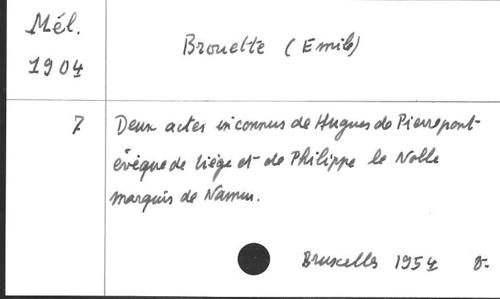 Mél.
1904
Brouette (Emile)
7
Deux actes inconnus de Hugues de Pierrepont
évêque de Liège et de Philippe le Noble
marquis de Namur.
Bruxelles 1954 8°